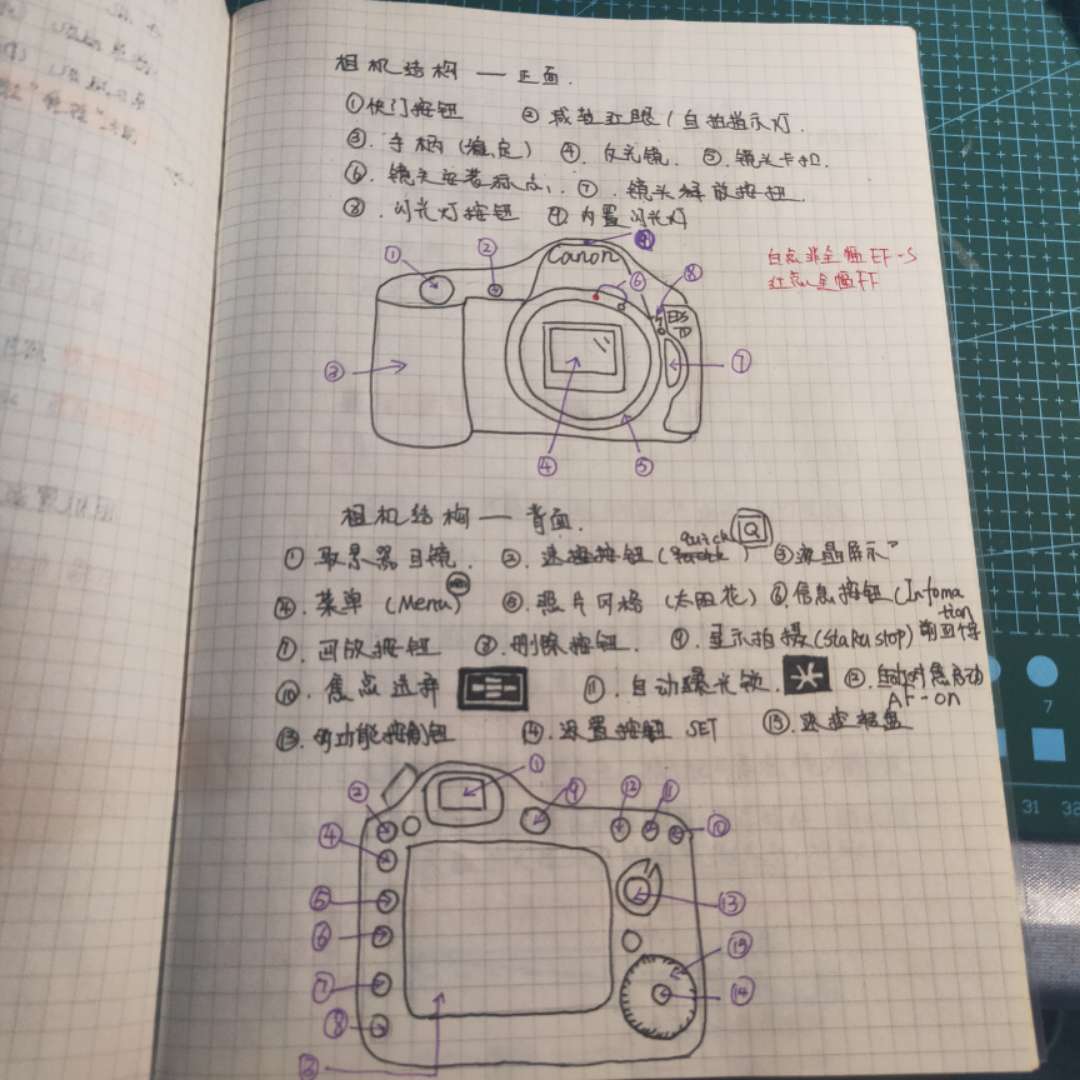 相机结构 — 正面.
①快门按钮 ②减轻红眼/自拍指示灯.
③.手柄(稳定) ④.反光镜. ⑤.镜头卡口.
⑥.镜头安装标点. ⑦.镜头释放按钮.
⑧.闪光灯按钮 ⑨内置闪光灯
① ② ⑨
Canon
白点非全幅EF-S
⑥ ⑧
红点全幅EF
EOS
7D
③ ⑦
④ ⑤
相机结构 — 背面.
①取景器目镜. ②.速控按钮(quick) Q ③液晶屏示
④.菜单(Menu) MENU ⑤.照片风格(太阳花) ⑥.信息按钮(Infomation)
⑦.回放按钮 ⑧.删除按钮. ⑨.显示拍摄(Start stop)
⑩.焦点选择 ⑪.自动曝光锁. ⑫.自动对焦启动
AF-on
⑬.多功能控制钮 ⑭.设置按钮 SET ⑮.速控转盘
① ② ⑨ ⑫ ⑪ ⑩
④
⑤ ⑬
⑥ ⑮
⑦ ⑭
⑧
③
7
31 32